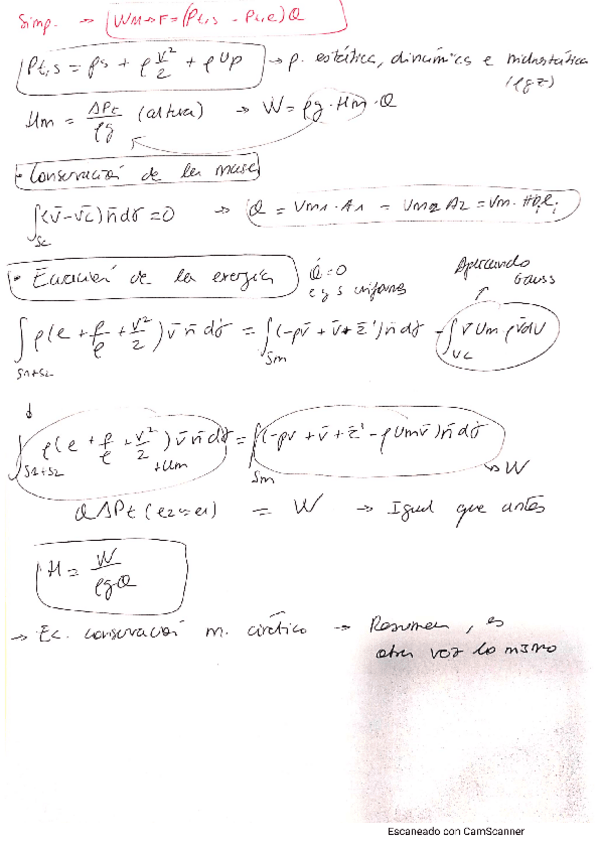 Simp. → W_M→F = (Pt,s - Pt,e) Q
Pt,s = ps + ρ v²/2 + ρ Up → p. estática, dinámica e hidrostática
(ρgz)
Hm = ΔPt/ρg (altura) → W = ρg · Hm · Q
- Conservación de la masa
∫sc (v̄ - v̄c) n̄ dσ = 0 → Q = Vm1 · A1 = Vm2 A2 = Vm ·
- Ecuación de la energía Q̇ = 0 Aplicando Gauss
e y s uniformes
∫S1+S2 ρ(e + p/ρ + v²/2) v̄ n̄ dσ = ∫Sm (-pv̄ + v̄ · τ̄') n̄ dσ - ∫VC ∇Um ρv̄ dV
↓
∫S1+S2 ρ(e + p/ρ + v²/2 + Um) v̄ n̄ dσ = ∫Sm (-pv + v̄ + τ̄' - ρUm v̄) n̄ dσ
→ W
Q ΔPt (e2=e1) = W → Igual que antes
H = W/ρgQ
→ Ec. conservación m. cinético → Resumen, es
otra vez lo mismo
Escaneado con CamScanner